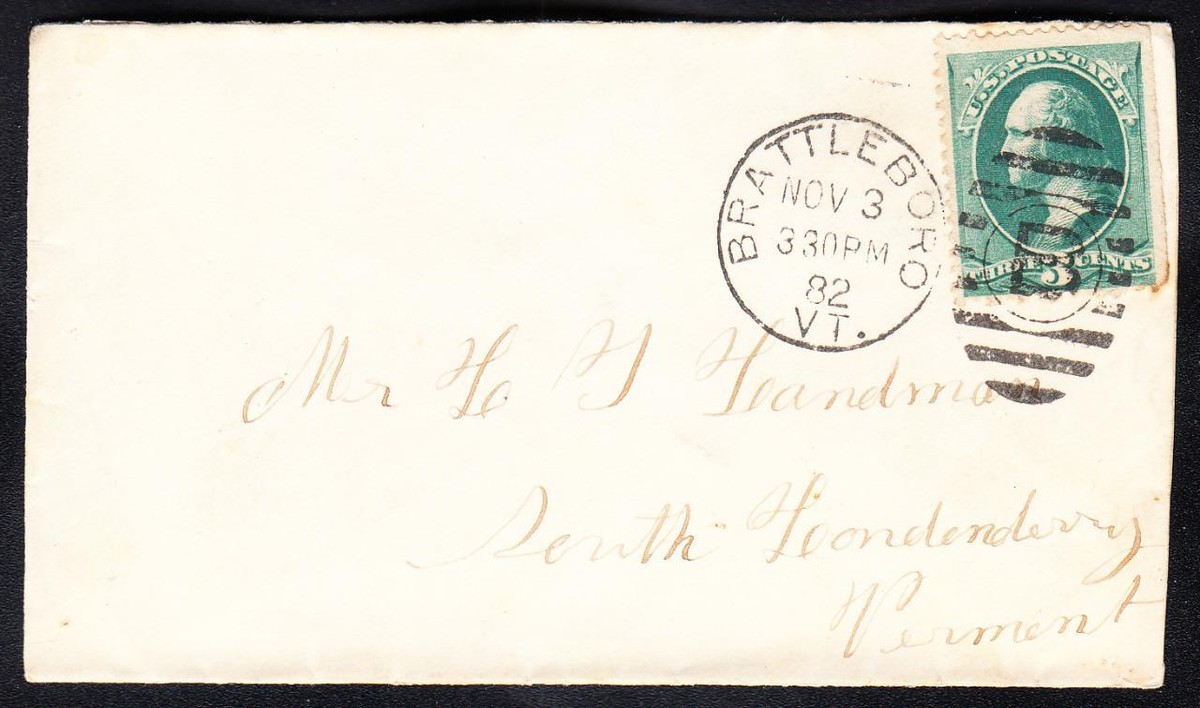 U.S. POSTAGE
THREE 3 CENTS
BRATTLEBORO
NOV 3
330PM
82
VT.
B
Mr H I Landman
South Londonderry
Vermont